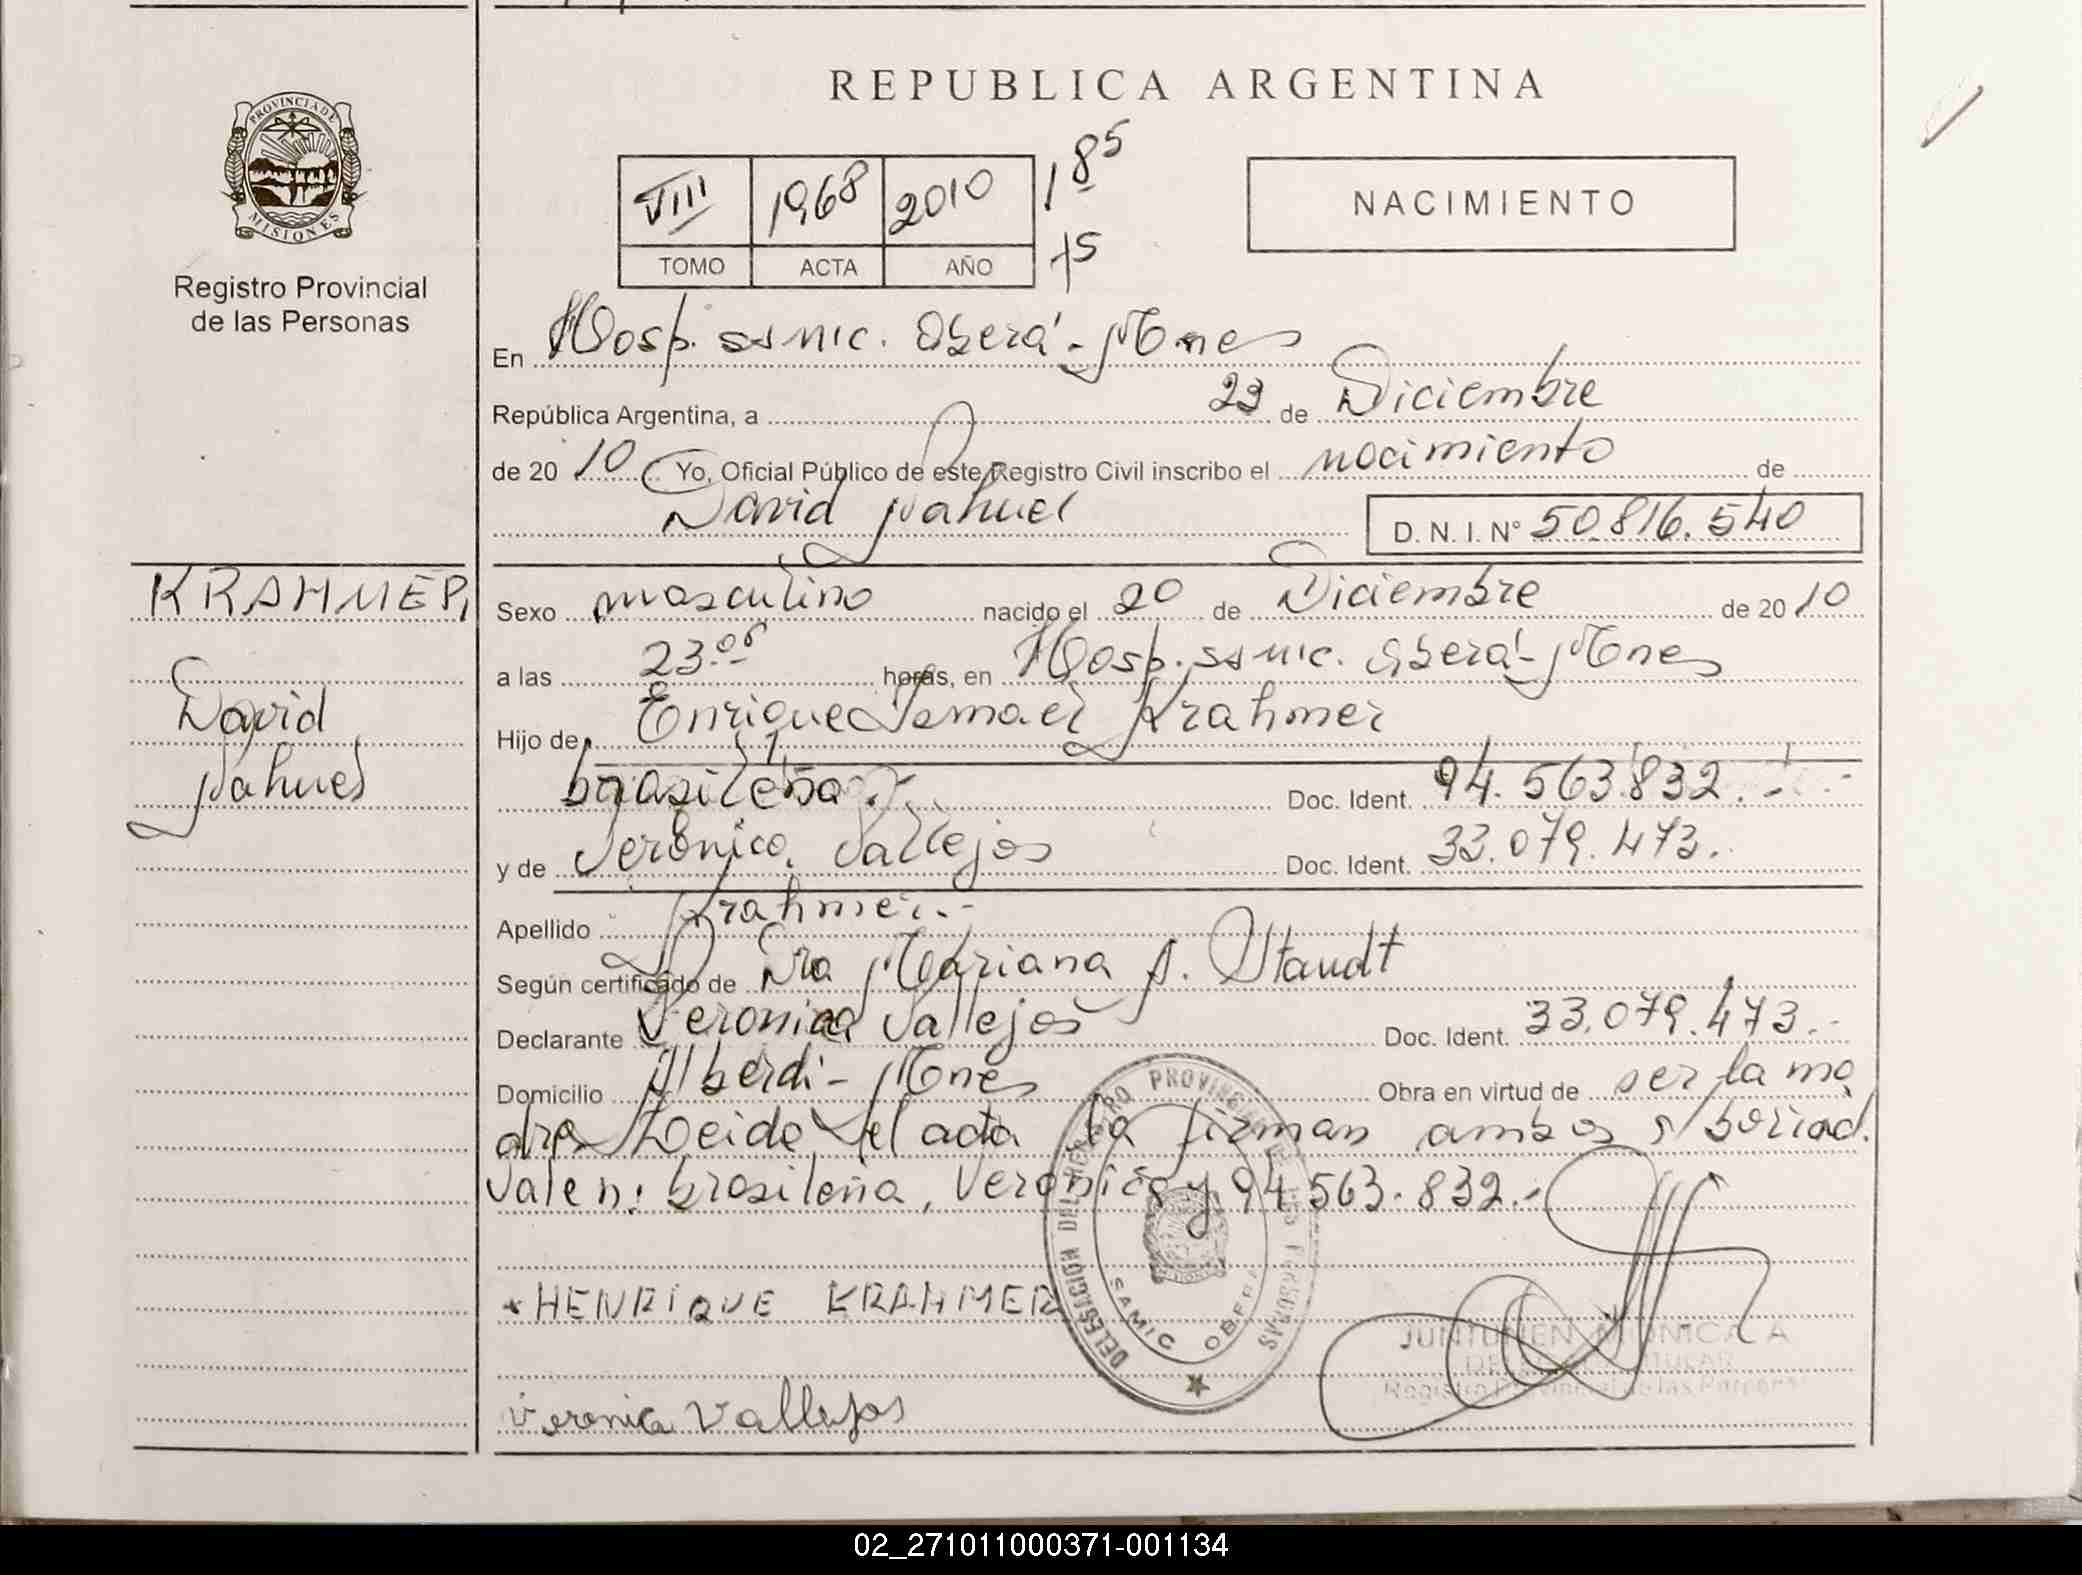 REPUBLICA ARGENTINA
PROVINCIA DE
MISIONES
Registro Provincial
de las Personas
VIII 1968 2010
TOMO ACTA AÑO
185
NACIMIENTO
En Hosp. ssmic. Oberá - Mnes
República Argentina, a 23 de Diciembre
de 20 10 Yo, Oficial Público de este Registro Civil inscribo el nacimiento de
David Nahuel D. N. I. N° 50.816.540
KRAHMER,
David
Nahuel
Sexo masculino nacido el 20 de Diciembre de 20 10
a las 23.05 horas, en Hosp. ssmic. Oberá - Mnes
Hijo de Enrique Ismael Krahmer
brasileña.- Doc. Ident. 94.563.832.-
y de Verónica Vallejos Doc. Ident. 33.079.473.
Apellido Krahmer.-
Según certificado de Dra Mariana A. Staudt
Declarante Veronica Vallejos Doc. Ident. 33.079.473.-
Domicilio Alberdi - Mnes Obra en virtud de ser la ma
dre Leida el acta la firman ambos s/ boriad.
Valen: brasileña, Veronica y 94 563.832.-
* HENRIQUE KRAHMER
Veronica Vallejos
DELEGACION DEL REGISTRO PROVINCIAL DE LAS PERSONAS
SAMIC OBERA
JUNTUNEN MONICA A
DELEGADA TITULAR
Registro Provincial de las Personas
02_271011000371-001134